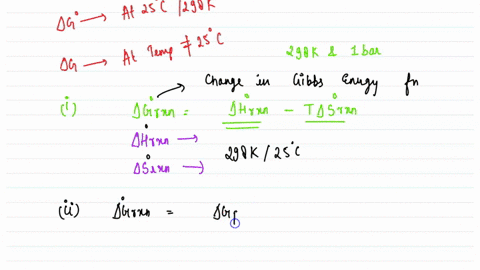 ΔG° → At 25°C / 298K
ΔG → At Temp ≠ 25°C
298K & 1 bar
Change in Gibbs Energy fn
(i) ΔG°rxn = ΔH°rxn - TΔS°rxn
ΔH°rxn →
ΔS°rxn → 298K / 25°C
(ii) ΔG°rxn = ΔGf